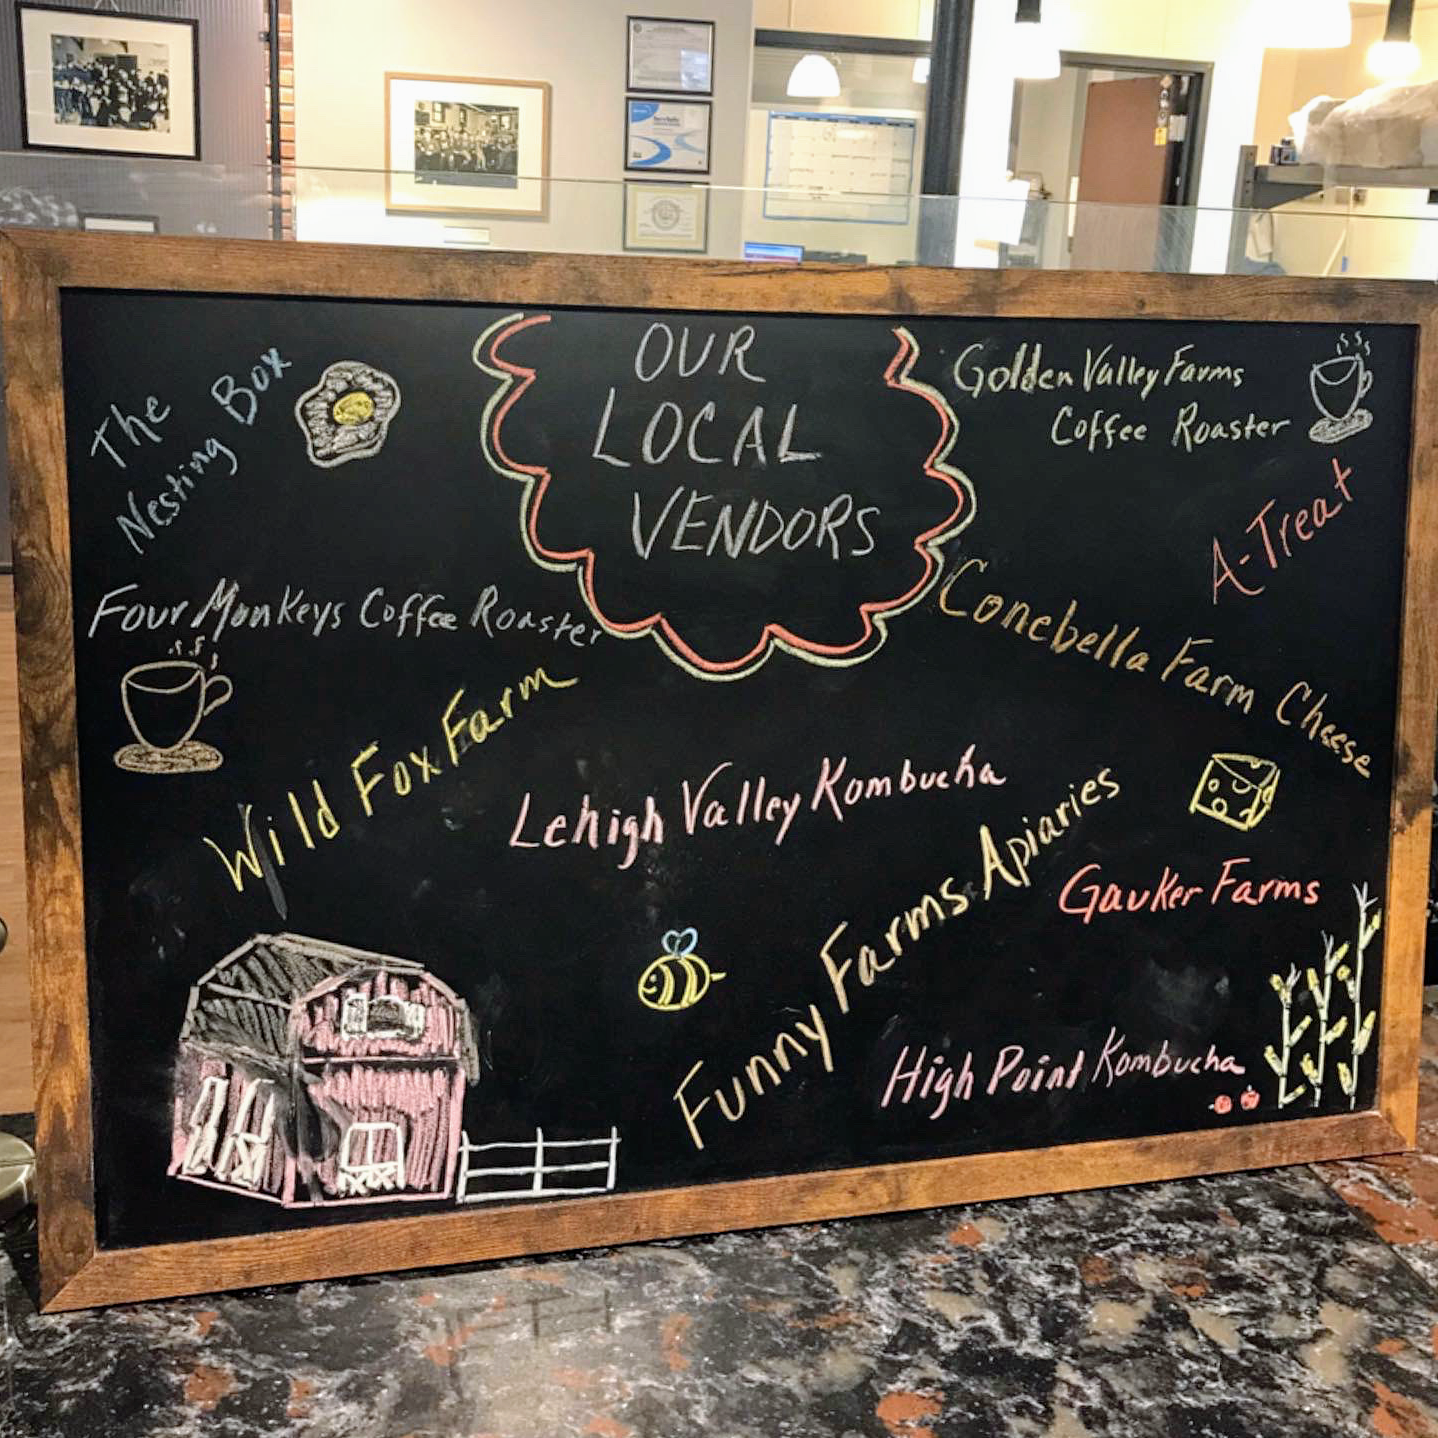 OUR
LOCAL
VENDORS
The
Nesting Box
Golden Valley Farms
Coffee Roaster
A-Treat
Four Monkeys Coffee Roaster
Conebella Farm Cheese
Wild Fox Farm
Lehigh Valley Kombucha
Funny Farms Apiaries
Gauker Farms
High Point Kombucha